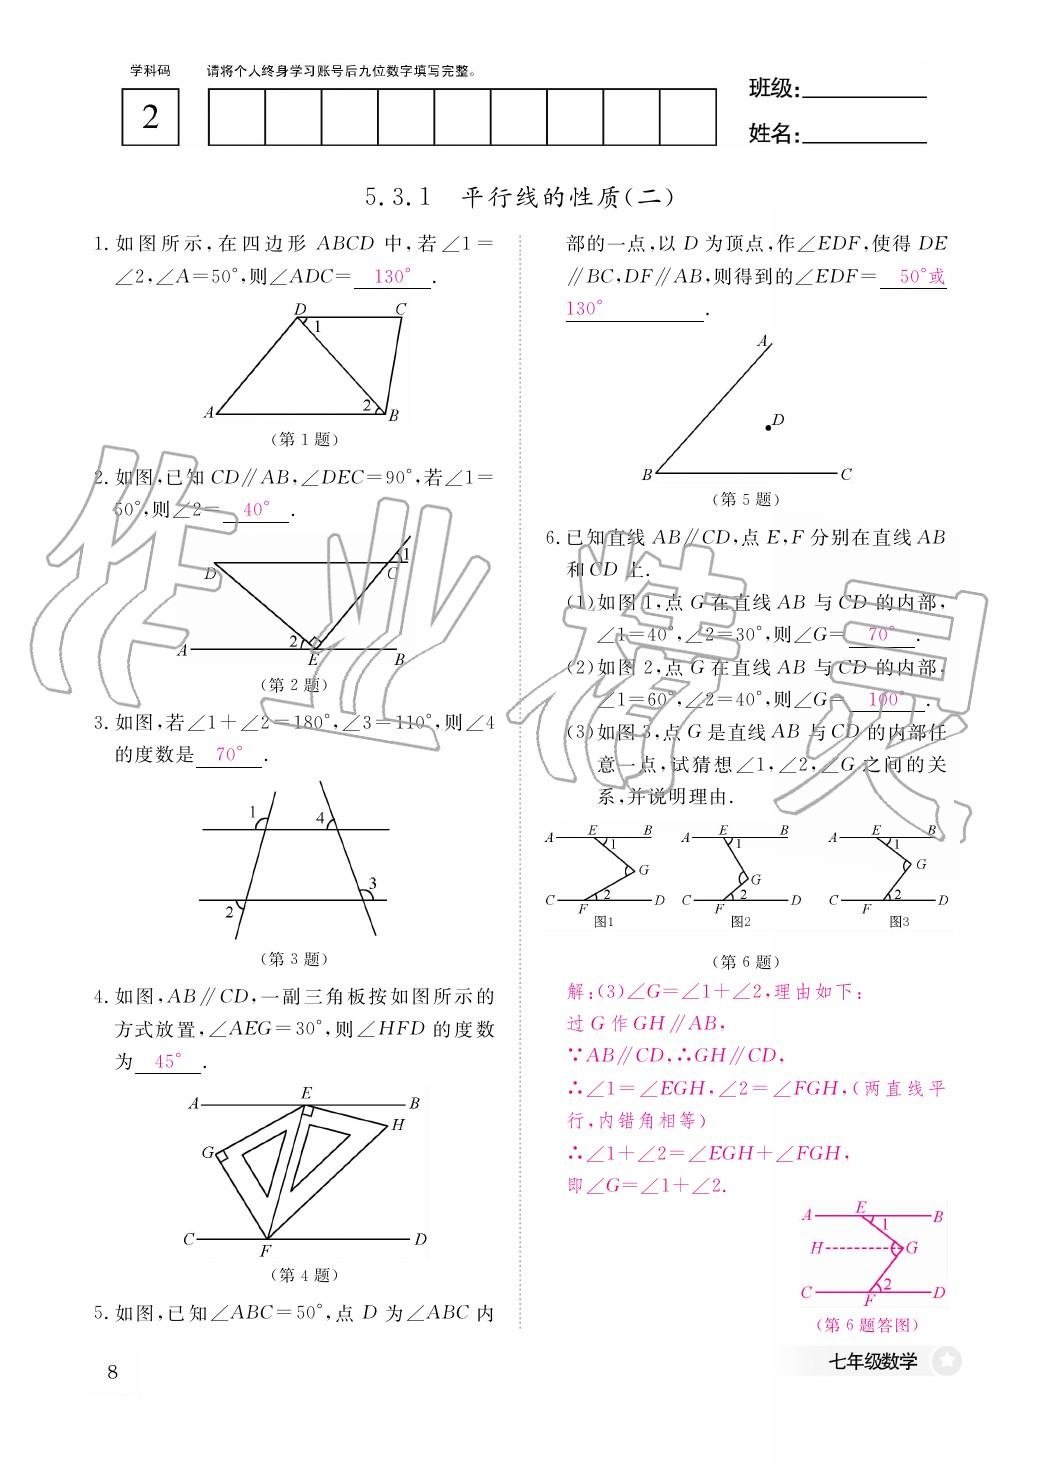 学科码
请将个人终身学习账号后九位数字填写完整。
2
班级:
姓名:
5.3.1 平行线的性质(二)
1. 如图所示,在四边形 ABCD 中,若∠1=
∠2,∠A=50°,则∠ADC= 130° .
D C
1
2
A B
(第 1 题)
2. 如图,已知 CD∥AB,∠DEC=90°,若∠1=
50°,则∠2= 40° .
1
D C
2
A E B
(第 2 题)
3. 如图,若∠1+∠2=180°,∠3=110°,则∠4
的度数是 70° .
1 4
3
2
(第 3 题)
4. 如图,AB∥CD,一副三角板按如图所示的
方式放置,∠AEG=30°,则∠HFD 的度数
为 45° .
A E B
H
G
C F D
(第 4 题)
5. 如图,已知∠ABC=50°,点 D 为∠ABC 内
部的一点,以 D 为顶点,作∠EDF,使得 DE
∥BC,DF∥AB,则得到的∠EDF= 50°或
130° .
A
D
B C
(第 5 题)
6. 已知直线 AB∥CD,点 E,F 分别在直线 AB
和 CD 上.
(1)如图 1,点 G 在直线 AB 与 CD 的内部,
∠1=40°,∠2=30°,则∠G= 70° .
(2)如图 2,点 G 在直线 AB 与 CD 的内部,
∠1=60°,∠2=40°,则∠G= 100° .
(3)如图 3,点 G 是直线 AB 与 CD 的内部任
意一点,试猜想∠1,∠2,∠G 之间的关
系,并说明理由.
A E B A E B A E B
1 1 1
G G G
2 2 2
C F D C F D C F D
图1 图2 图3
(第 6 题)
解:(3)∠G=∠1+∠2,理由如下:
过 G 作 GH∥AB,
∵AB∥CD,∴GH∥CD,
∴∠1=∠EGH,∠2=∠FGH,(两直线平
行,内错角相等)
∴∠1+∠2=∠EGH+∠FGH,
即∠G=∠1+∠2.
A E B
1
H G
2
C F D
(第 6 题答图)
七年级数学
8
作业精灵